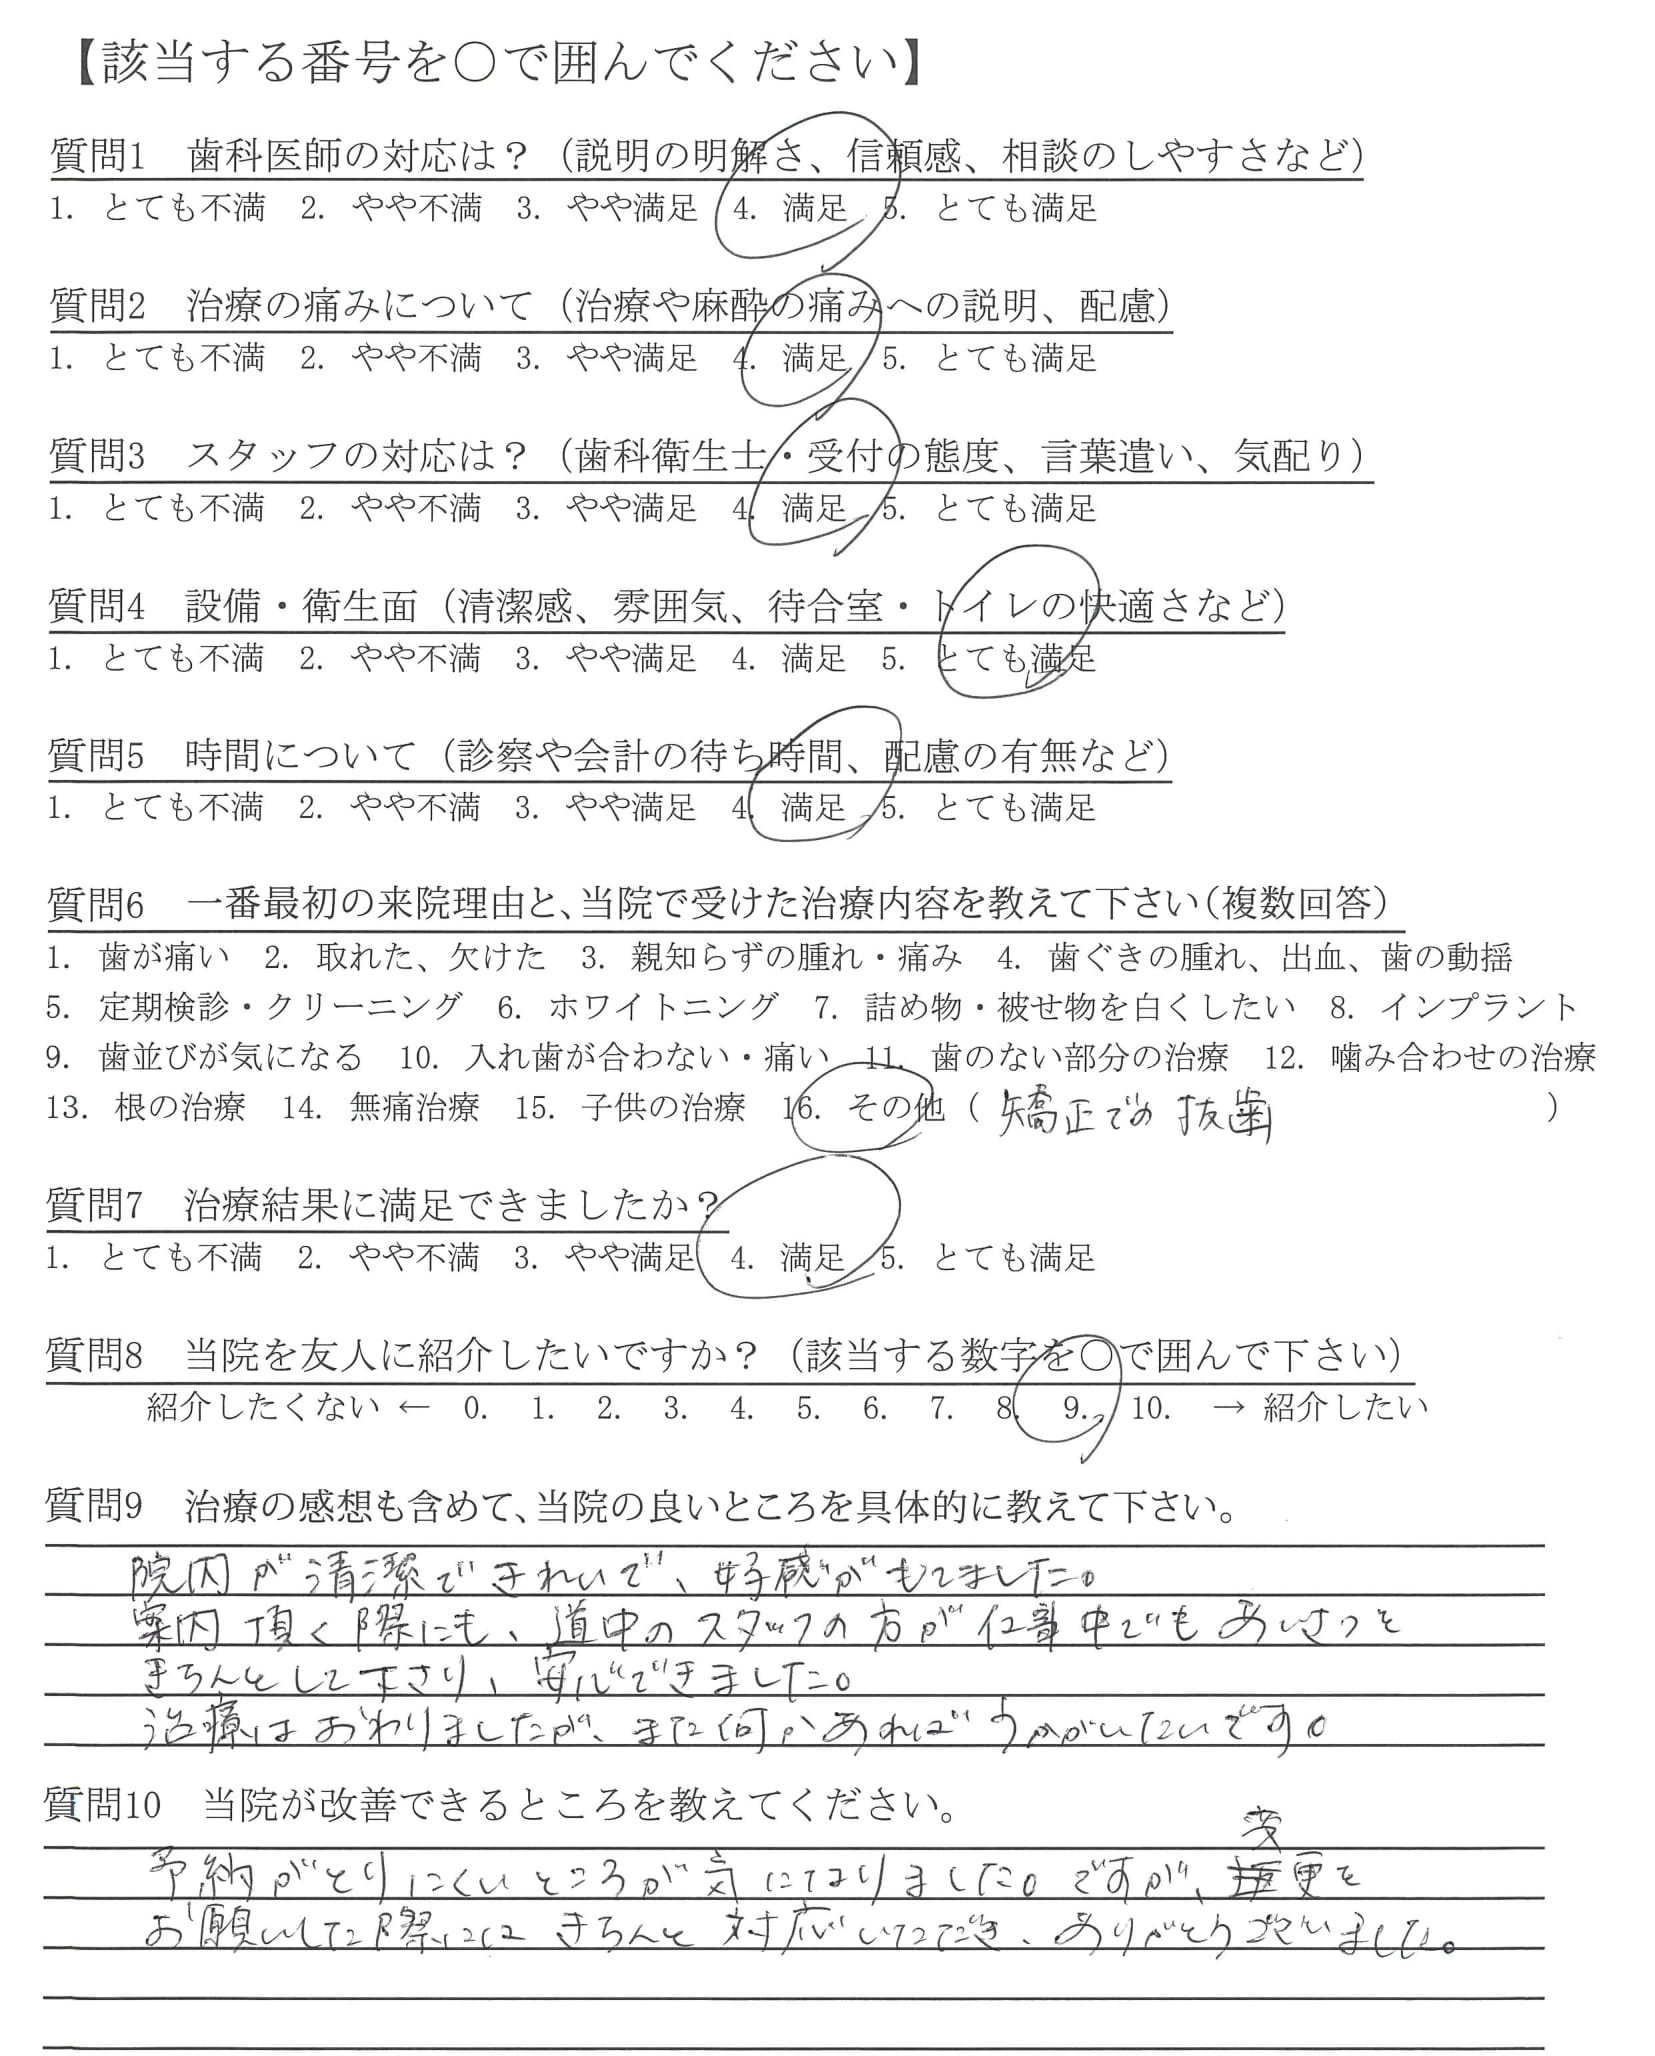 【該当する番号を〇で囲んでください】
質問1　歯科医師の対応は？（説明の明解さ、信頼感、相談のしやすさなど）
1. とても不満　2. やや不満　3. やや満足　4. 満足　5. とても満足
質問2　治療の痛みについて（治療や麻酔の痛みへの説明、配慮）
1. とても不満　2. やや不満　3. やや満足　4. 満足　5. とても満足
質問3　スタッフの対応は？（歯科衛生士・受付の態度、言葉遣い、気配り）
1. とても不満　2. やや不満　3. やや満足　4. 満足　5. とても満足
質問4　設備・衛生面（清潔感、雰囲気、待合室・トイレの快適さなど）
1. とても不満　2. やや不満　3. やや満足　4. 満足　5. とても満足
質問5　時間について（診察や会計の待ち時間、配慮の有無など）
1. とても不満　2. やや不満　3. やや満足　4. 満足　5. とても満足
質問6　一番最初の来院理由と、当院で受けた治療内容を教えて下さい（複数回答）
1. 歯が痛い　2. 取れた、欠けた　3. 親知らずの腫れ・痛み　4. 歯ぐきの腫れ、出血、歯の動揺
5. 定期検診・クリーニング　6. ホワイトニング　7. 詰め物・被せ物を白くしたい　8. インプラント
9. 歯並びが気になる　10. 入れ歯が合わない・痛い　11. 歯のない部分の治療　12. 噛み合わせの治療
13. 根の治療　14. 無痛治療　15. 子供の治療　16. その他（矯正での抜歯）
質問7　治療結果に満足できましたか？
1. とても不満　2. やや不満　3. やや満足　4. 満足　5. とても満足
質問8　当院を友人に紹介したいですか？（該当する数字を〇で囲んで下さい）
紹介したくない ← 0. 1. 2. 3. 4. 5. 6. 7. 8. 9. 10. → 紹介したい
質問9　治療の感想も含めて、当院の良いところを具体的に教えて下さい。
院内が清潔できれいで、好感がもてました。
案内頂く際にも、道中のスタッフの方が仕事中でもあいさつを
きちんとして下さり、安心できました。
治療はおわりましたが、また何かあればうかがいたいです。
質問10　当院が改善できるところを教えてください。
予約がとりにくいところが気になりました。ですが、変更を
お願いした際にはきちんと対応いただき、ありがとうございました。